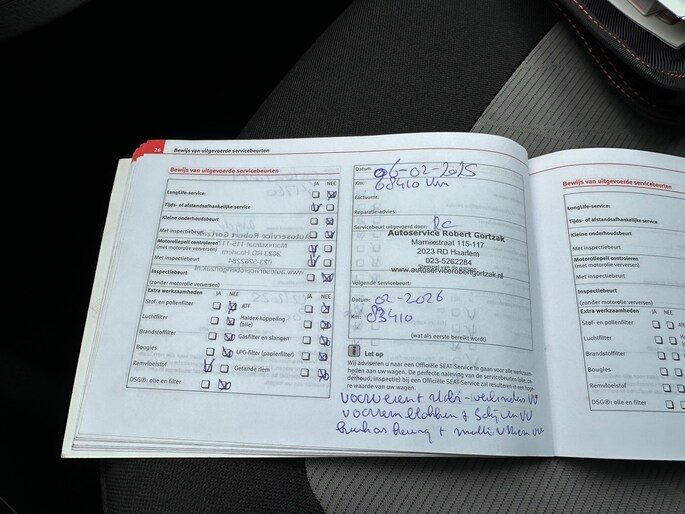 26 Bewijs van uitgevoerde servicebeurten
Bewijs van uitgevoerde servicebeurten
JA NEE
LongLife-service:
Tijds- of afstandsafhankelijke service
Kleine onderhoudsbeurt
Met inspectiebeurt
Motoroliepeil controleren
(met motorolie verversen)
Met inspectiebeurt
Inspectiebeurt
(zonder motorolie verversen)
Extra werkzaamheden JA NEE JA NEE
Stof- en pollenfilter ATF
Luchtfilter Haldex-koppeling
(olie)
Brandstoffilter Gasfilter en slangen
Bougies LPG-filter (papierfilter)
Remvloeistof Getande riem
DSG®: olie en filter
Datum 06-02-2025
Km: 68410 km
Factuurnr.
Reparatie-advies:
Servicebeurt uitgevoerd door:
Autoservice Robert Gortzak
Marnixstraat 115-117
2023 RD Haarlem
023-5262284
www.autoservicerobertgortzak.nl
Volgende servicebeurt:
Datum: 02-2026
Km: 83410
(wat als eerste bereikt wordt)
Let op
Wij adviseren u naar een Officiële SEAT-Service te gaan voor alle werkzaam-
heden aan uw wagen. De perfecte naleving van de servicebeurten (olie, on-
derhoud, inspectie) bij een Officiële SEAT-Service zal resulteren in een hoge-
re waarde van uw wagen.
voorremblokken + schijven VV
Bewijs van uitgevoerde servicebeurten
LongLife-service:
Tijds- of afstandsafhankelijke service
Kleine onderhoudsbeurt
Met inspectiebeurt
Motoroliepeil controleren
(met motorolie verversen)
Met inspectiebeurt
Inspectiebeurt
(zonder motorolie verversen)
Extra werkzaamheden JA NEE
Stof- en pollenfilter
Luchtfilter
Brandstoffilter
Bougies
Remvloeistof
DSG®: olie en filter